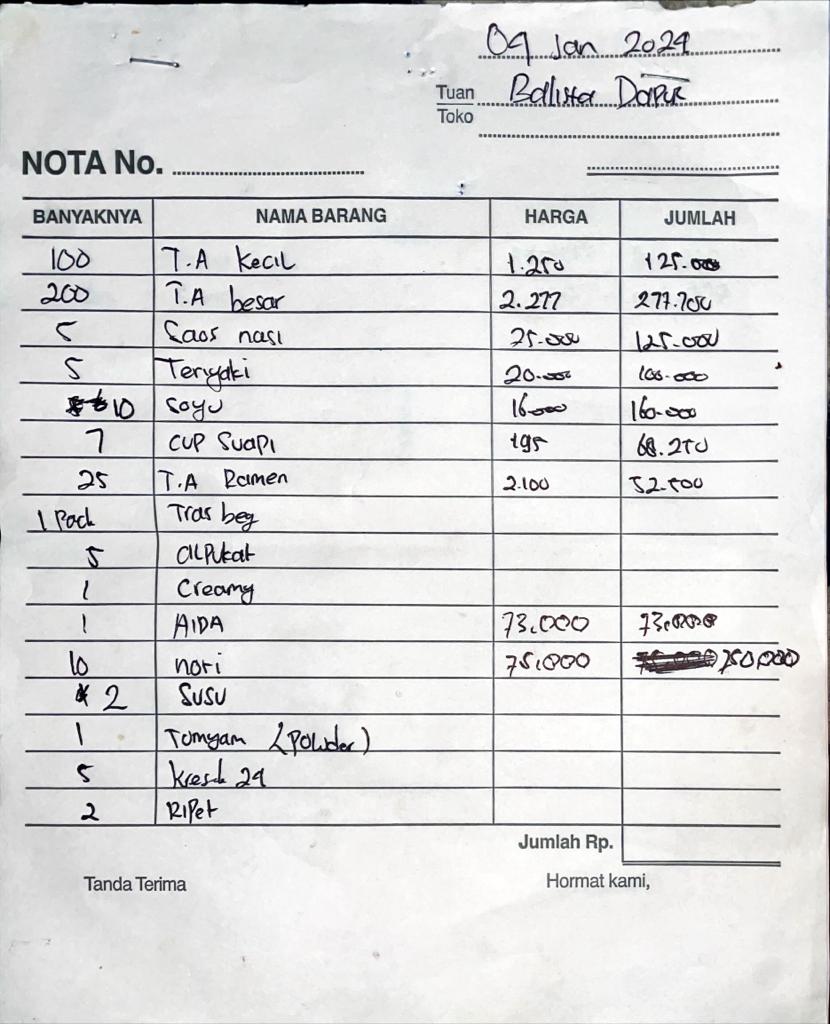 09 Jan 2024
Tuan
Toko
Ballista Dapur
NOTA No.
BANYAKNYA NAMA BARANG HARGA JUMLAH
100 T.A Kecil 1.250 125.000
200 T.A besar 2.277 277.700
5 Saos nasi 25.000 125.000
5 Teriyaki 20.000 100.000
10 Soyu 16.000 160.000
7 CUP Suapi 195 68.250
25 T.A Ramen 2.100 52.500
1 Pack Tras beg
5 alpukat
1 Creamy
1 AIDA 73.000 73.000
10 nori 75.000 750.000
2 SUSU
1 Tomyam (Powder)
5 kresek 24
2 RIPet
Jumlah Rp.
Tanda Terima Hormat kami,